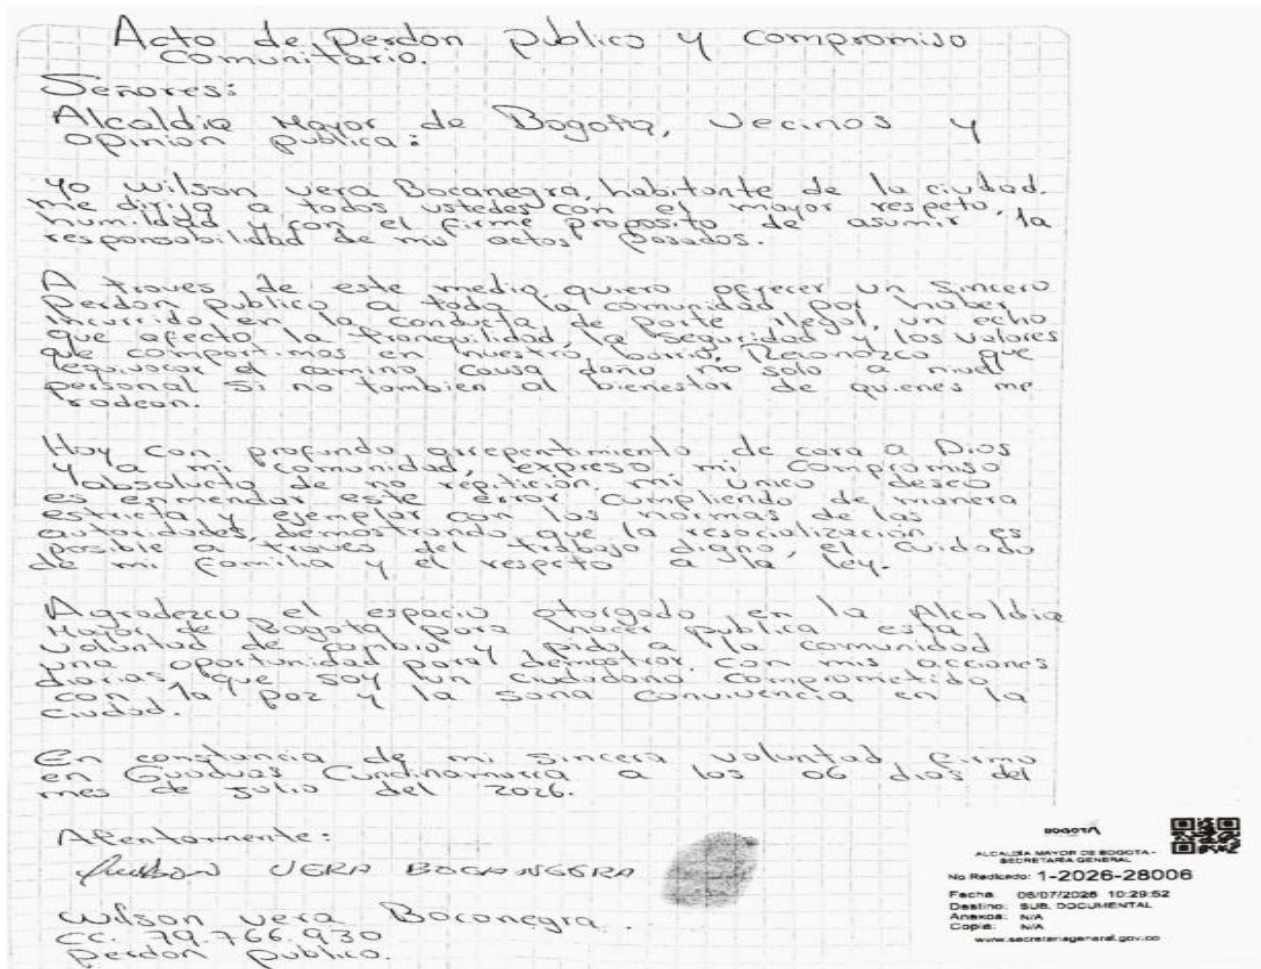 Acto de Perdon publico y compromiso
Comunitario.
Señores:
Alcaldia Mayor de Bogota, vecinos y
opinion publica:
yo wilson vera Bocanegra, habitante de la ciudad.
me dirijo a todos ustedes con el mayor respeto,
humildad y con el firme proposito de asumir la
responsabilidad de mis actos pasados.
A traves de este medio, quiero ofrecer un sincero
Perdon publico a toda la comunidad por haber
incurrido en la conducta de porte ilegal, un echo
que afecto la tranquilidad, la seguridad y los valores
que compartimos en nuestro barrio, Reconozco que
equivocar el camino causa daño no solo a nivel
personal Si no tambien al bienestar de quienes me
rodean.
Hoy con profundo arrepentimiento de cara a Dios
y a mi comunidad, expreso mi compromiso
absoluto de no repiticion. mi unico deseo
es enmendar este error cumpliendo de manera
estricta y ejemplar con las normas de las
autoridades, demostrando que la resocialización es
posible a traves del trabajo digno, el cuidado
de mi familia y el respeto a la ley.
Agradezco el espacio otorgado en la Alcaldia
Mayor de Bogota para hacer publica esta
voluntad de cambio y pido a la comunidad
una oportunidad para demostrar. con mis acciones
diarias, que soy un ciudadano comprometido
con la paz y la sana convivencia en la
ciudad.
En constancia de mi sincera voluntad, firmo
en Guaduas Cundinamarca a los 06 dias del
mes de julio del 2026.
Atentamente:
VERA BOCANEGRA
wilson vera Bocanegra.
cc. 79.766.930
perdon publico.
BOGOTÁ
ALCALDIA MAYOR DE BOGOTA -
SECRETARIA GENERAL
No Radicado: 1-2026-28006
Fecha: 06/07/2026 10:29:52
Destino: SUB. DOCUMENTAL
Anexos: N/A
Copia: N/A
www.secretariageneral.gov.co